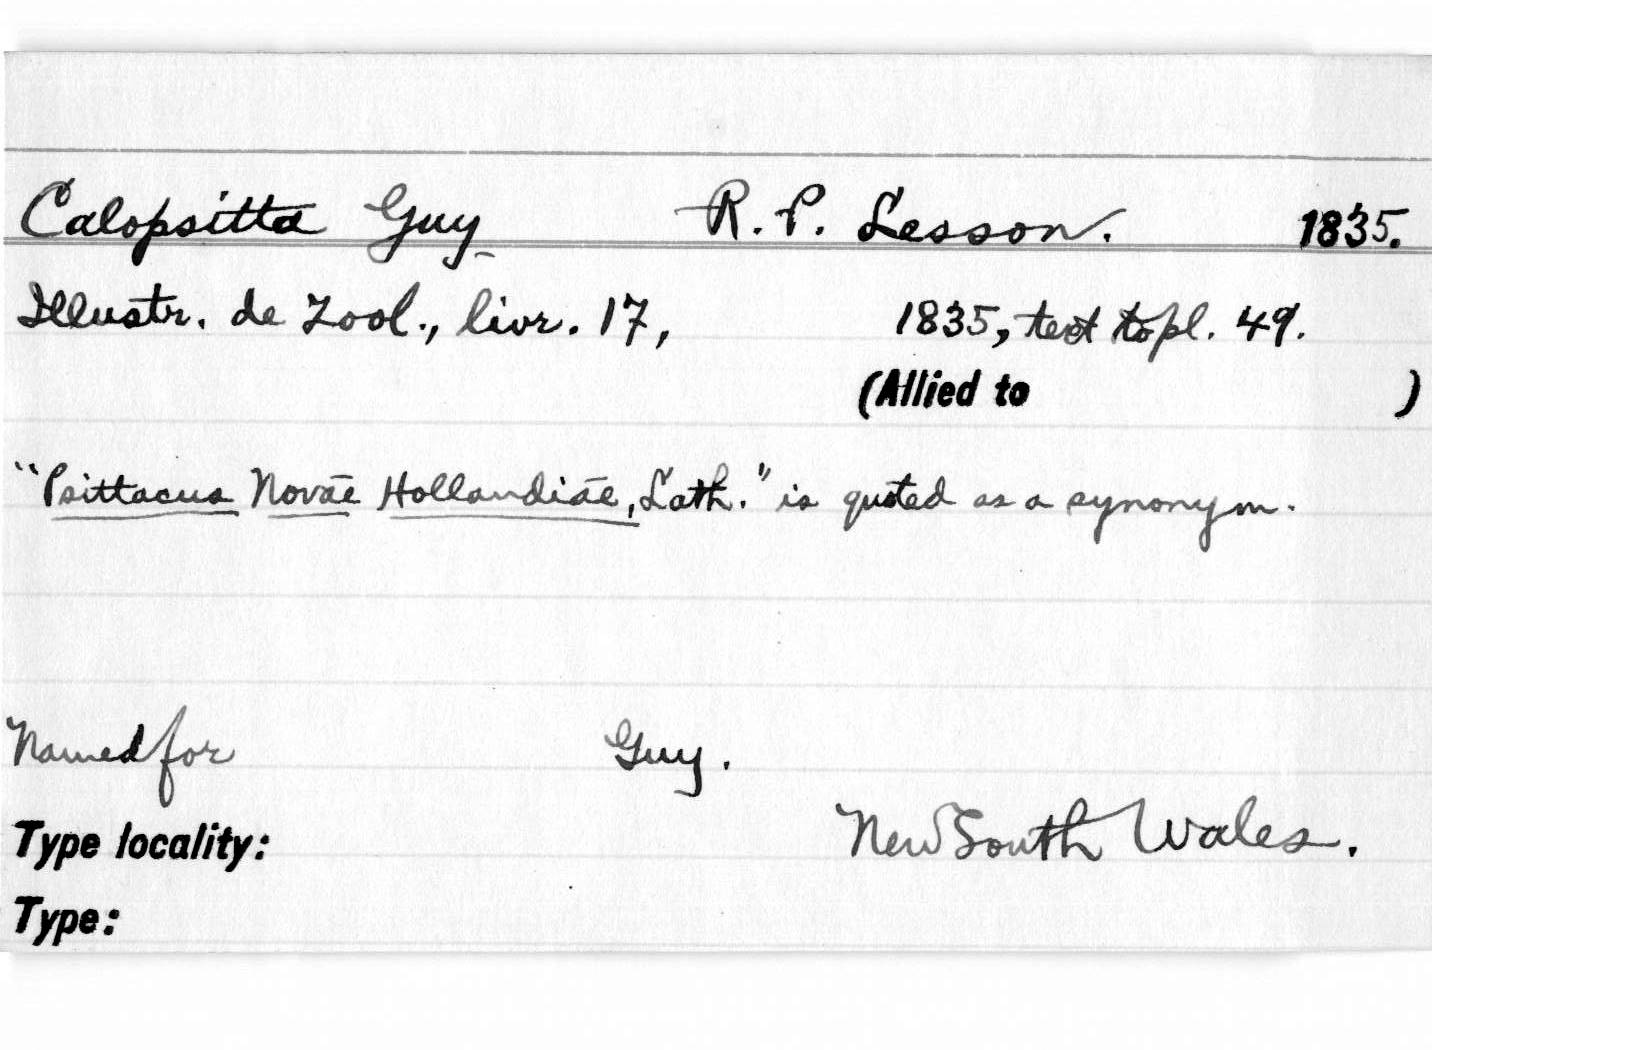 Calopsitta Guy R. P. Lesson. 1835.
Illustr. de Zool., livr. 17, 1835, text to pl. 49.
(Allied to )
"Psittacus Novae Hollandiae, Lath." is quoted as a synonym.
Named for Guy.
Type locality: New South Wales.
Type: